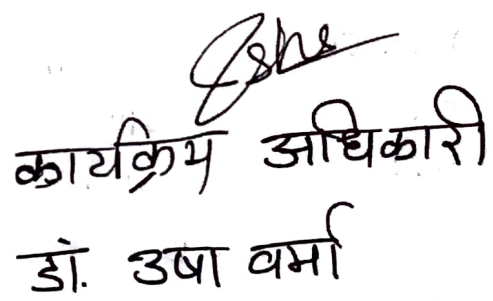 कार्यक्रम अधिकारी
डॉ. उषा वर्मा